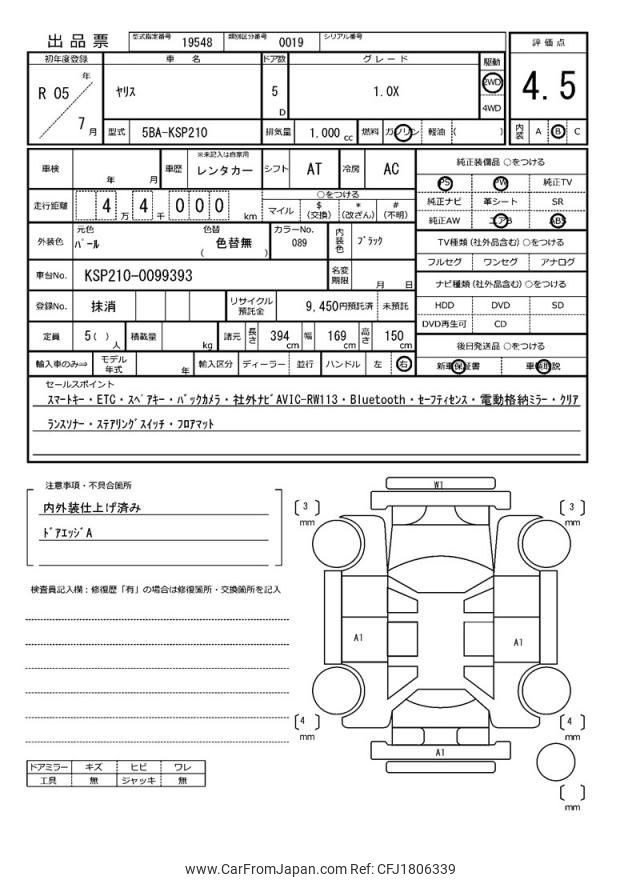 出品票 型式指定番号 19548 類別区分番号 0019 シリアル番号
評価点
4.5
初年度登録 車名 ドア数 グレード 駆動
R 05 年 7 月
ヤリス 5 D 1.0X 2WD
4WD
型式 5BA-KSP210 排気量 1.000 cc 燃料 ガソリン 軽油 ( )
内装 A B C
車検 年 月 車歴 ※未記入は自家用 レンタカー シフト AT 冷房 AC
純正装備品 ○をつける
PS PW 純正TV
純正ナビ 革シート SR
純正AW エアB ABS
走行距離 4 万 4 千 0 0 0 km
○をつける
マイル $ (交換) * (改ざん) # (不明)
外装色 元色 パール 色替 ( 色替無 ) カラーNo. 089 内装色 ブラック
TV種類(社外品含む)○をつける
フルセグ ワンセグ アナログ
車台No. KSP210-0099393 名変期限 月 日
ナビ種類(社外品含む)○をつける
HDD DVD SD
DVD再生可 CD
登録No. 抹消 リサイクル預託金 9,450円預託済 未預託
定員 5( ) 人 積載量 kg 諸元 長さ 394 cm 幅 169 cm 高さ 150 cm
後日発送品 ○をつける
新車保証書 車輌取説
輸入車のみ⇒ モデル年式 年 輸入区分 ディーラー 並行 ハンドル 左 右
セールスポイント
スマートキー・ETC・スペアキー・バックカメラ・社外ナビAVIC-RW113・Bluetooth・セーフティセンス・電動格納ミラー・クリア
ランスソナー・ステアリングスイッチ・フロアマット
注意事項・不具合箇所
内外装仕上げ済み
ドアエッジA
検査員記入欄:修復歴「有」の場合は修復箇所・交換箇所を記入
W1
[ 3 ] mm
[ 3 ] mm
A1
A1
[ 4 ] mm
[ 4 ] mm
A1
[ ] mm
ドアミラー キズ ヒビ ワレ
工具 無 ジャッキ 無
www.CarFromJapan.com Ref: CFJ1806339